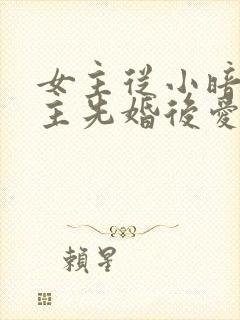 女主從小暗
主先婚後愛
賴星